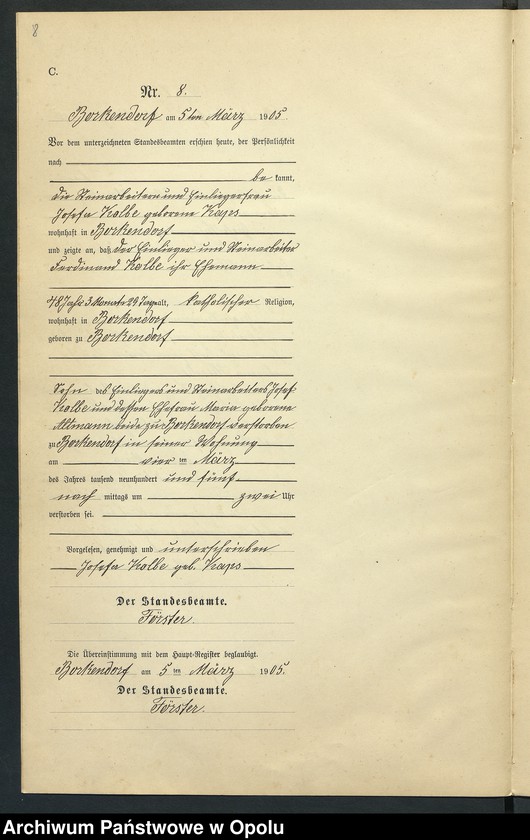 8
C.
Nr. 8.
Borkendorf am 5ten März 1905.
Vor dem unterzeichneten Standesbeamten erschien heute, der Persönlichkeit
nach
be kannt,
die Steinarbeiterin und Einliegerfrau
Josefa Kolbe geborene Kaps
wohnhaft in Borkendorf
und zeigte an, daß der Einlieger und Steinarbeiter
Ferdinand Kolbe ihr Ehemann
48 Jahr 3 Monate 29 Tage alt, katholischer Religion,
wohnhaft in Borkendorf
geboren zu Borkendorf
Sohn des Einliegers und Steinarbeiters Josef
Kolbe und dessen Ehefrau Maria geborene
Altmann beide zu Borkendorf verstorben
zu Borkendorf in seiner Wohnung
am vier ten März
des Jahres tausend neunhundert und fünf
nach mittags um zwei Uhr
verstorben sei.
Vorgelesen, genehmigt und unterschrieben
Josefa Kolbe geb. Kaps
Der Standesbeamte.
Förster.
Die Übereinstimmung mit dem Haupt-Register beglaubigt.
Borkendorf am 5 ten März 1905.
Der Standesbeamte.
Förster.
Archiwum Państwowe w Opolu